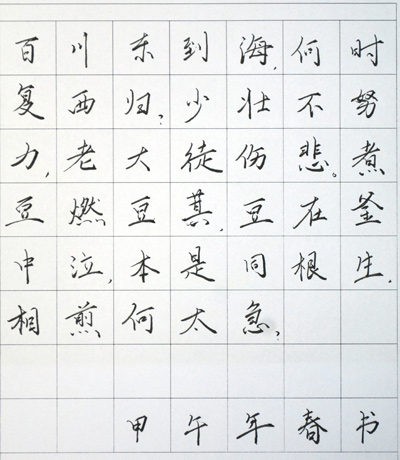 百川东到海,何时
复西归?少壮不努
力,老大徒伤悲。煮
豆燃豆萁,豆在釜
中泣,本是同根生.
相煎何太急?
甲午年春书